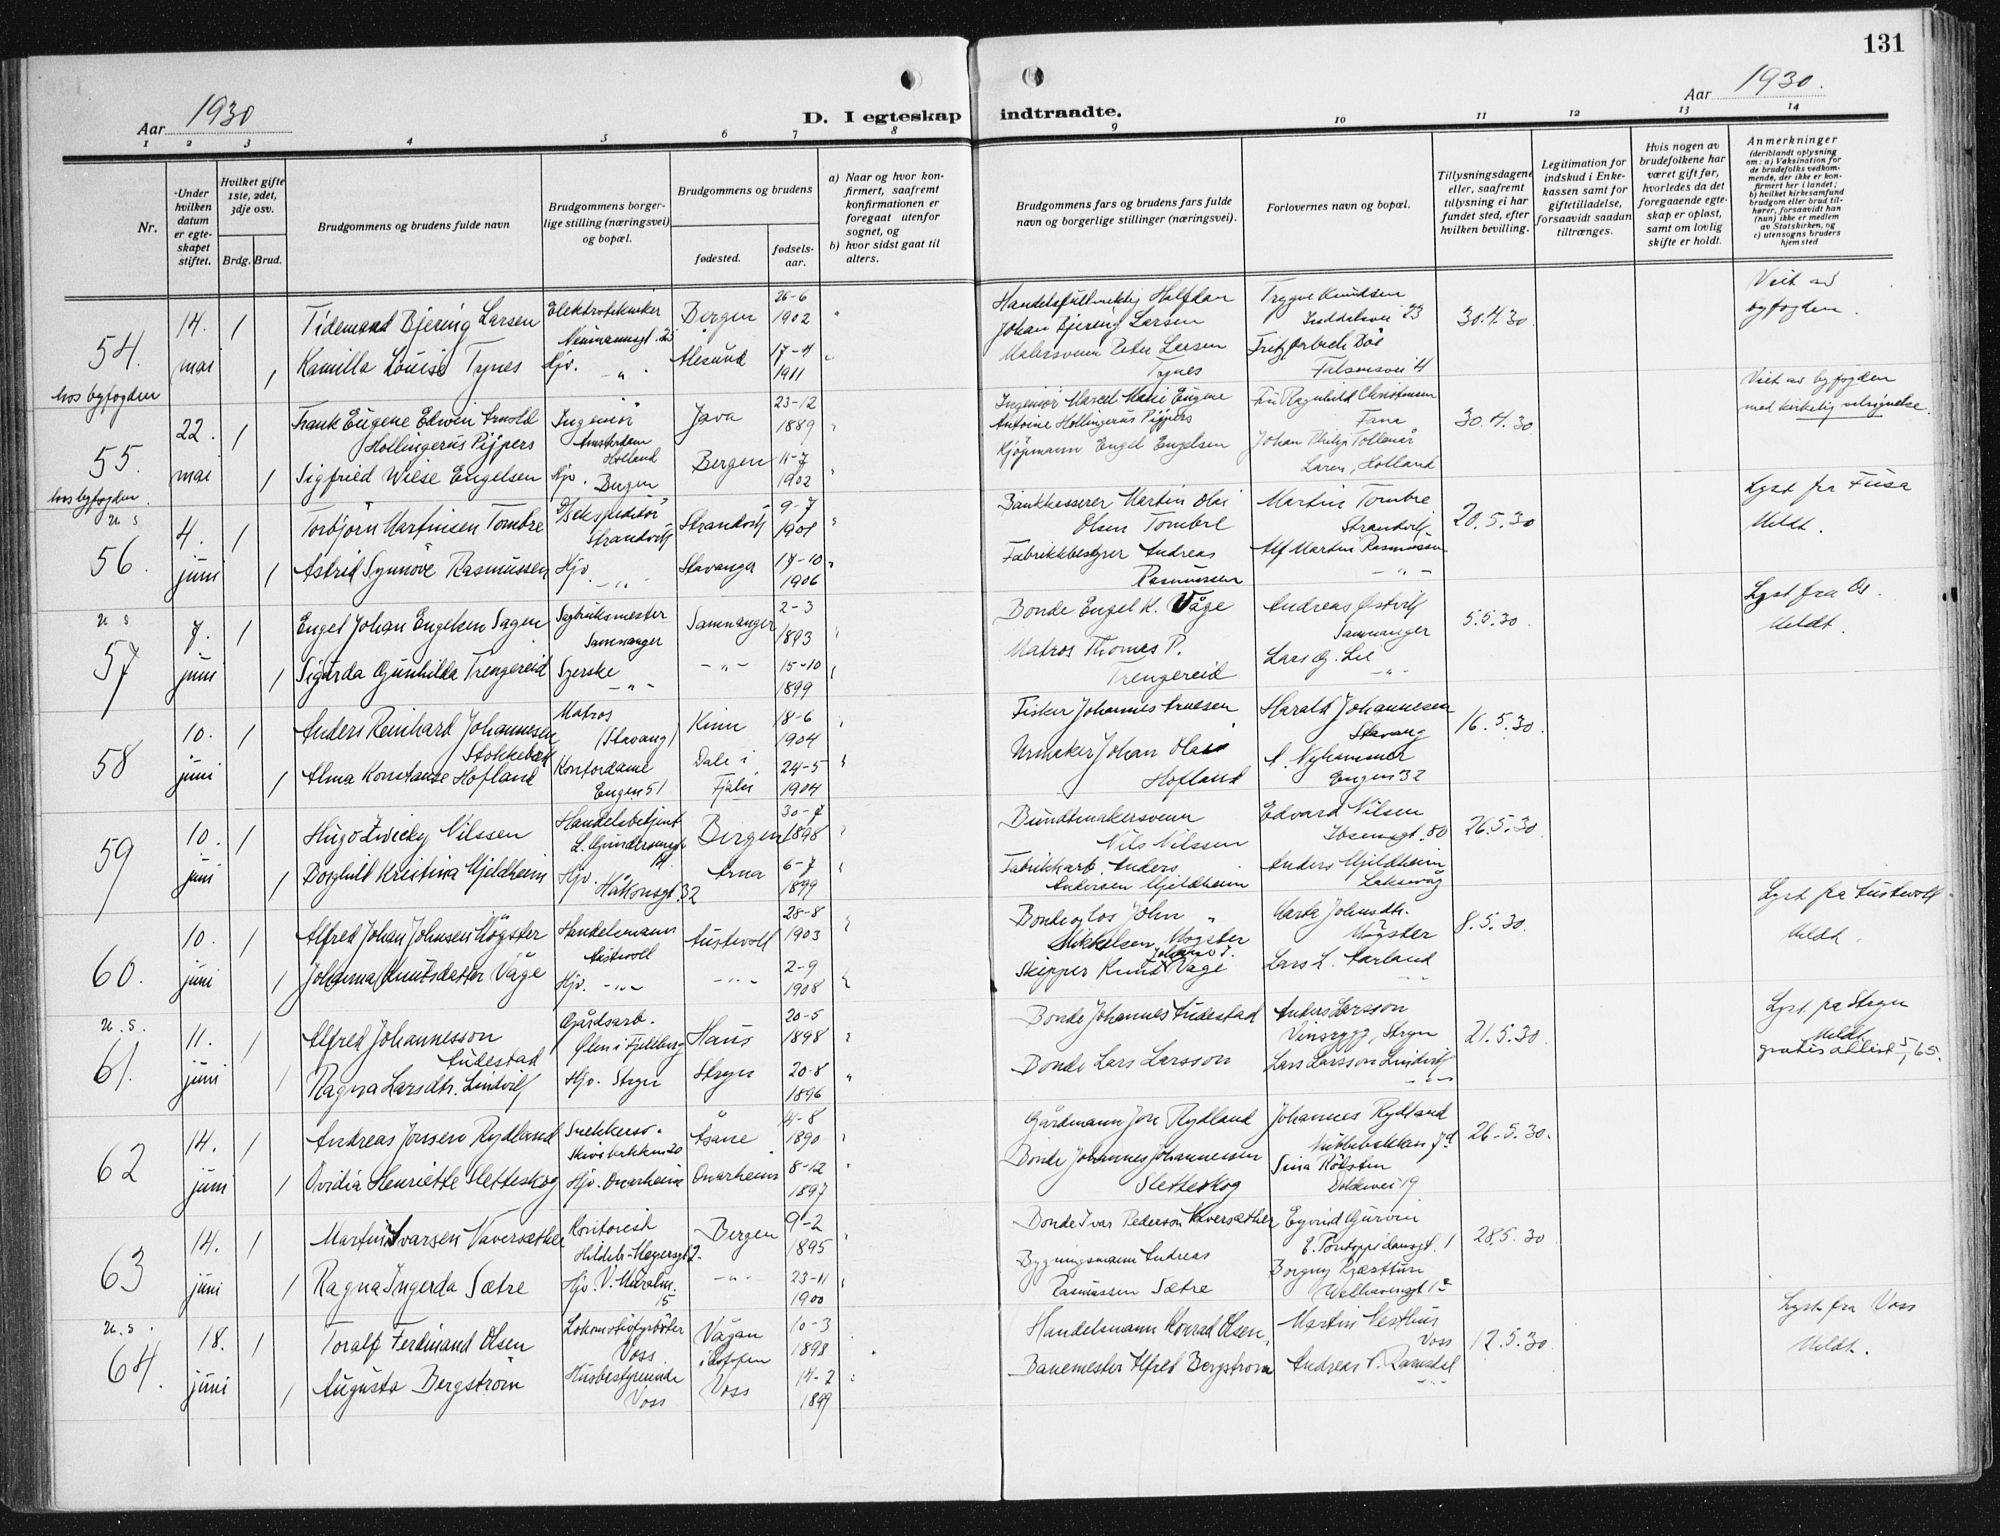 131
Aar 1930
D. I egteskap indtraadte.
Aar 1930.
1 2 3 4 5 6 7 8 9 10 11 12 13 14
Nr.
Under hvilken datum er egteskapet stiftet.
Hvilket gifte 1ste, 2det, 3dje osv.
Brdg. Brud.
Brudgommens og brudens fulde navn
Brudgommens borgerlige stilling (næringsvei) og bopæl.
Brudgommens og brudens
fødested.
fødselsaar.
a) Naar og hvor konfirmert, saafremt konfirmationen er foregaat utenfor sognet, og
b) hvor sidst gaat til alters.
Brudgommens fars og brudens fars fulde navn og borgerlige stillinger (næringsvei).
Forlovernes navn og bopæl.
Tillysningsdagene eller, saafremt tillysning ei har fundet sted, efter hvilken bevilling.
Legitimation for indskud i Enkekassen samt for giftetilladelse, forsaavidt saadan tiltrænges.
Hvis nogen av brudefolkene har været gift før, hvorledes da det foregaaende egteskap er opløst, samt om lovlig skifte er holdt.
Anmerkninger
(deriblandt oplysning om: a) Vaksination for de brudefolks vedkommende, der ikke er konfirmert her i landet; b) hvilket kirkesamfund brudgom eller brud tilhører, forsaavidt han (hun) ikke er medlem av Statskirken, og c) utensogns bruders hjemsted
54. 14. mai 1 Tidemand Bjering Larsen Elektrotekniker Neumannsgt. 25 Bergen 26-6 1902 Handelsfullmektig Halfdan Johan Bjering Larsen Trygve Knudsen 23 30.4.30 Viet av byfogden.
hos byfogden 1 Kamilla Louise Tynes Hjv. " Ålesund 17-4 1911 Malersvenn Peter Larsen Tynes Fritz Falsensvei 4
55. 22. mai 1 Frank Eugene Edwin Arnold Hollingerus Pijpers Ingeniør Amsterdam Holland Java 23-12 1889 Ingeniør Marcel Marie Eugene Antoine Hollingerus Pijpers Fru Ragnhild Christensen Fana 30.4.30 Viet av byfogden med kirkelig velsignelse.
hos byfogden. 1 Sigfried Wiese Engelsen Hjv. Bergen Bergen 11-7 1902 Kjøpmann Engel Engelsen Johan Philip Tollenär Laren, Holland
u s
56. 4. juni 1 Torbjørn Martinsen Tombre Ekspeditør Strandvik Strandvik 9-7 1901 Bankkasserer Martin Olai Olsen Tombre Martin Tombre Strandvik 20.5.30 Lyst fra Fusa Meldt.
1 Astrid Synnöve Rasmussen Hjv. -"- Stavanger 17-10 1906 Fabrikkbestyrer Andreas Rasmussen Alf Martin Rasmussen -"-
u s
57 7. juni 1 Engel Johan Engelsen Sagen Sagbruksmester Samnanger Samnanger 2-3 1893 Bonde Engel K. Våge Andreas Østvik Samnanger 5.5.30. Lyst fra Os. Meldt.
1 Sigurda Gunhilda Trengereid Syerske -"- -"- 15-10 1899 Matros Thomas P. Trengereid Lars O. Lie -"-
58 10. juni 1 Anders Reinhard Johannesen Stokkebekk Matros (Stavang) Kinn 18-6 1904 Fisker Johannes Arnesen Harald Johannesen Stavang 16.5.30.
1 Alma Konstanse Hofland Kontordame Engen 51 Dale i Fjaler 24-5 1904 Urmaker Johan Olai Hofland A. Nyhammer Engen 32
59 10. juni 1 Hugo Zwicky Nilssen Handelsbetjent Bergen 30-7 1898 Bundtmakersvenn Nils Nilssen Edvard Nilsen Ibsensgt. 80 26.5.30.
1 Borghild Kristina Mjeldheim Hjv. Håkonsgt. 32 Arna 6-7 1899 Fabrikkarb. Anders Andersen Mjeldheim Anders Mjeldheim Laksevåg
60. 10. juni 1 Alfred Johan Johnsen Møgster Handelsmann Austevoll Austevoll 28-8 1903 Bonde og los John Mikkelsen Møgster Marta Johnsdtr. Møgster 8.5.30. Lyst fra Austevoll Meldt.
1 Johanna Knutsdatter Våge Hjv. -"- -"- 2-9 1908 Skipper Knut Våge Lars L. Aarland
u. s.
61. 11. juni 1 Alfred Johannesson Audestad Gårdsarb. Ølen i Fjellberg Haus 20-5 1898 Bonde Johannes Audestad Anders Larsson Vinsrygg, Stryn 21.5.30. Lyst fra Stryn Meldt gratis attest 5/6 5.
1 Ragna Larsdtr. Lindvik Hjv. Stryn Stryn 20-8 1896 Bonde Lars Larsson Lars Larsson Lindvik -"-
62 14. juni 1 Andreas Jonsen Rydland Snekkersv. Skivebakken 20 Åsane 4-8 1890 Gårdmann Jon Rydland Johannes Rydland Nubbebakken 7d 26-5.30.
1 Ovidia Henriette Sletteskog Hjv. Onarheim Onarheim 8-12 1897 Bonde Johannes Johannessen Sletteskog Sina Røisten 19
63 14. juni 1 Martin Ivarsen Vaversæther Kontorist Bergen 9-2 1895 Bonde Ivar Pederson Vaversæther Eyvind Gurvin E. Pontoppidansgt. 1 28.5.30
1 Ragna Ingerda Sætre Hjv. V. Muralm. 15 -"- 23-11 1900 Bygningsmann Andreas Rasmussen Sætre Borgny Welhavensgt 1
u. s.
64. 18. juni 1 Toralf Ferdinand Olsen Lokomotivfyrbøter Voss Vågan i Lofoten 10-3 1898 Handelsmann Konrad Olsen, Martin Nesthus Voss 17.5.30. Lyst fra Voss Meldt.
1 Augusta Bergstrøm Husbestyrerinde Voss Voss 14-2 1899 Banemester Alfred Bergstrøm Andreas -"-